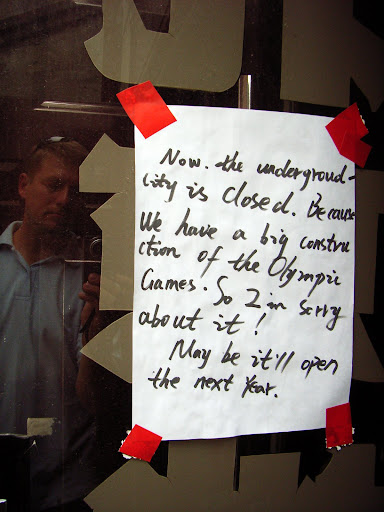 Now. the undergroud-
city is closed. Because
We have a big constru
ction of the Olympic
Games. So I'm sorry
about it!
May be it'll open
the next Year.